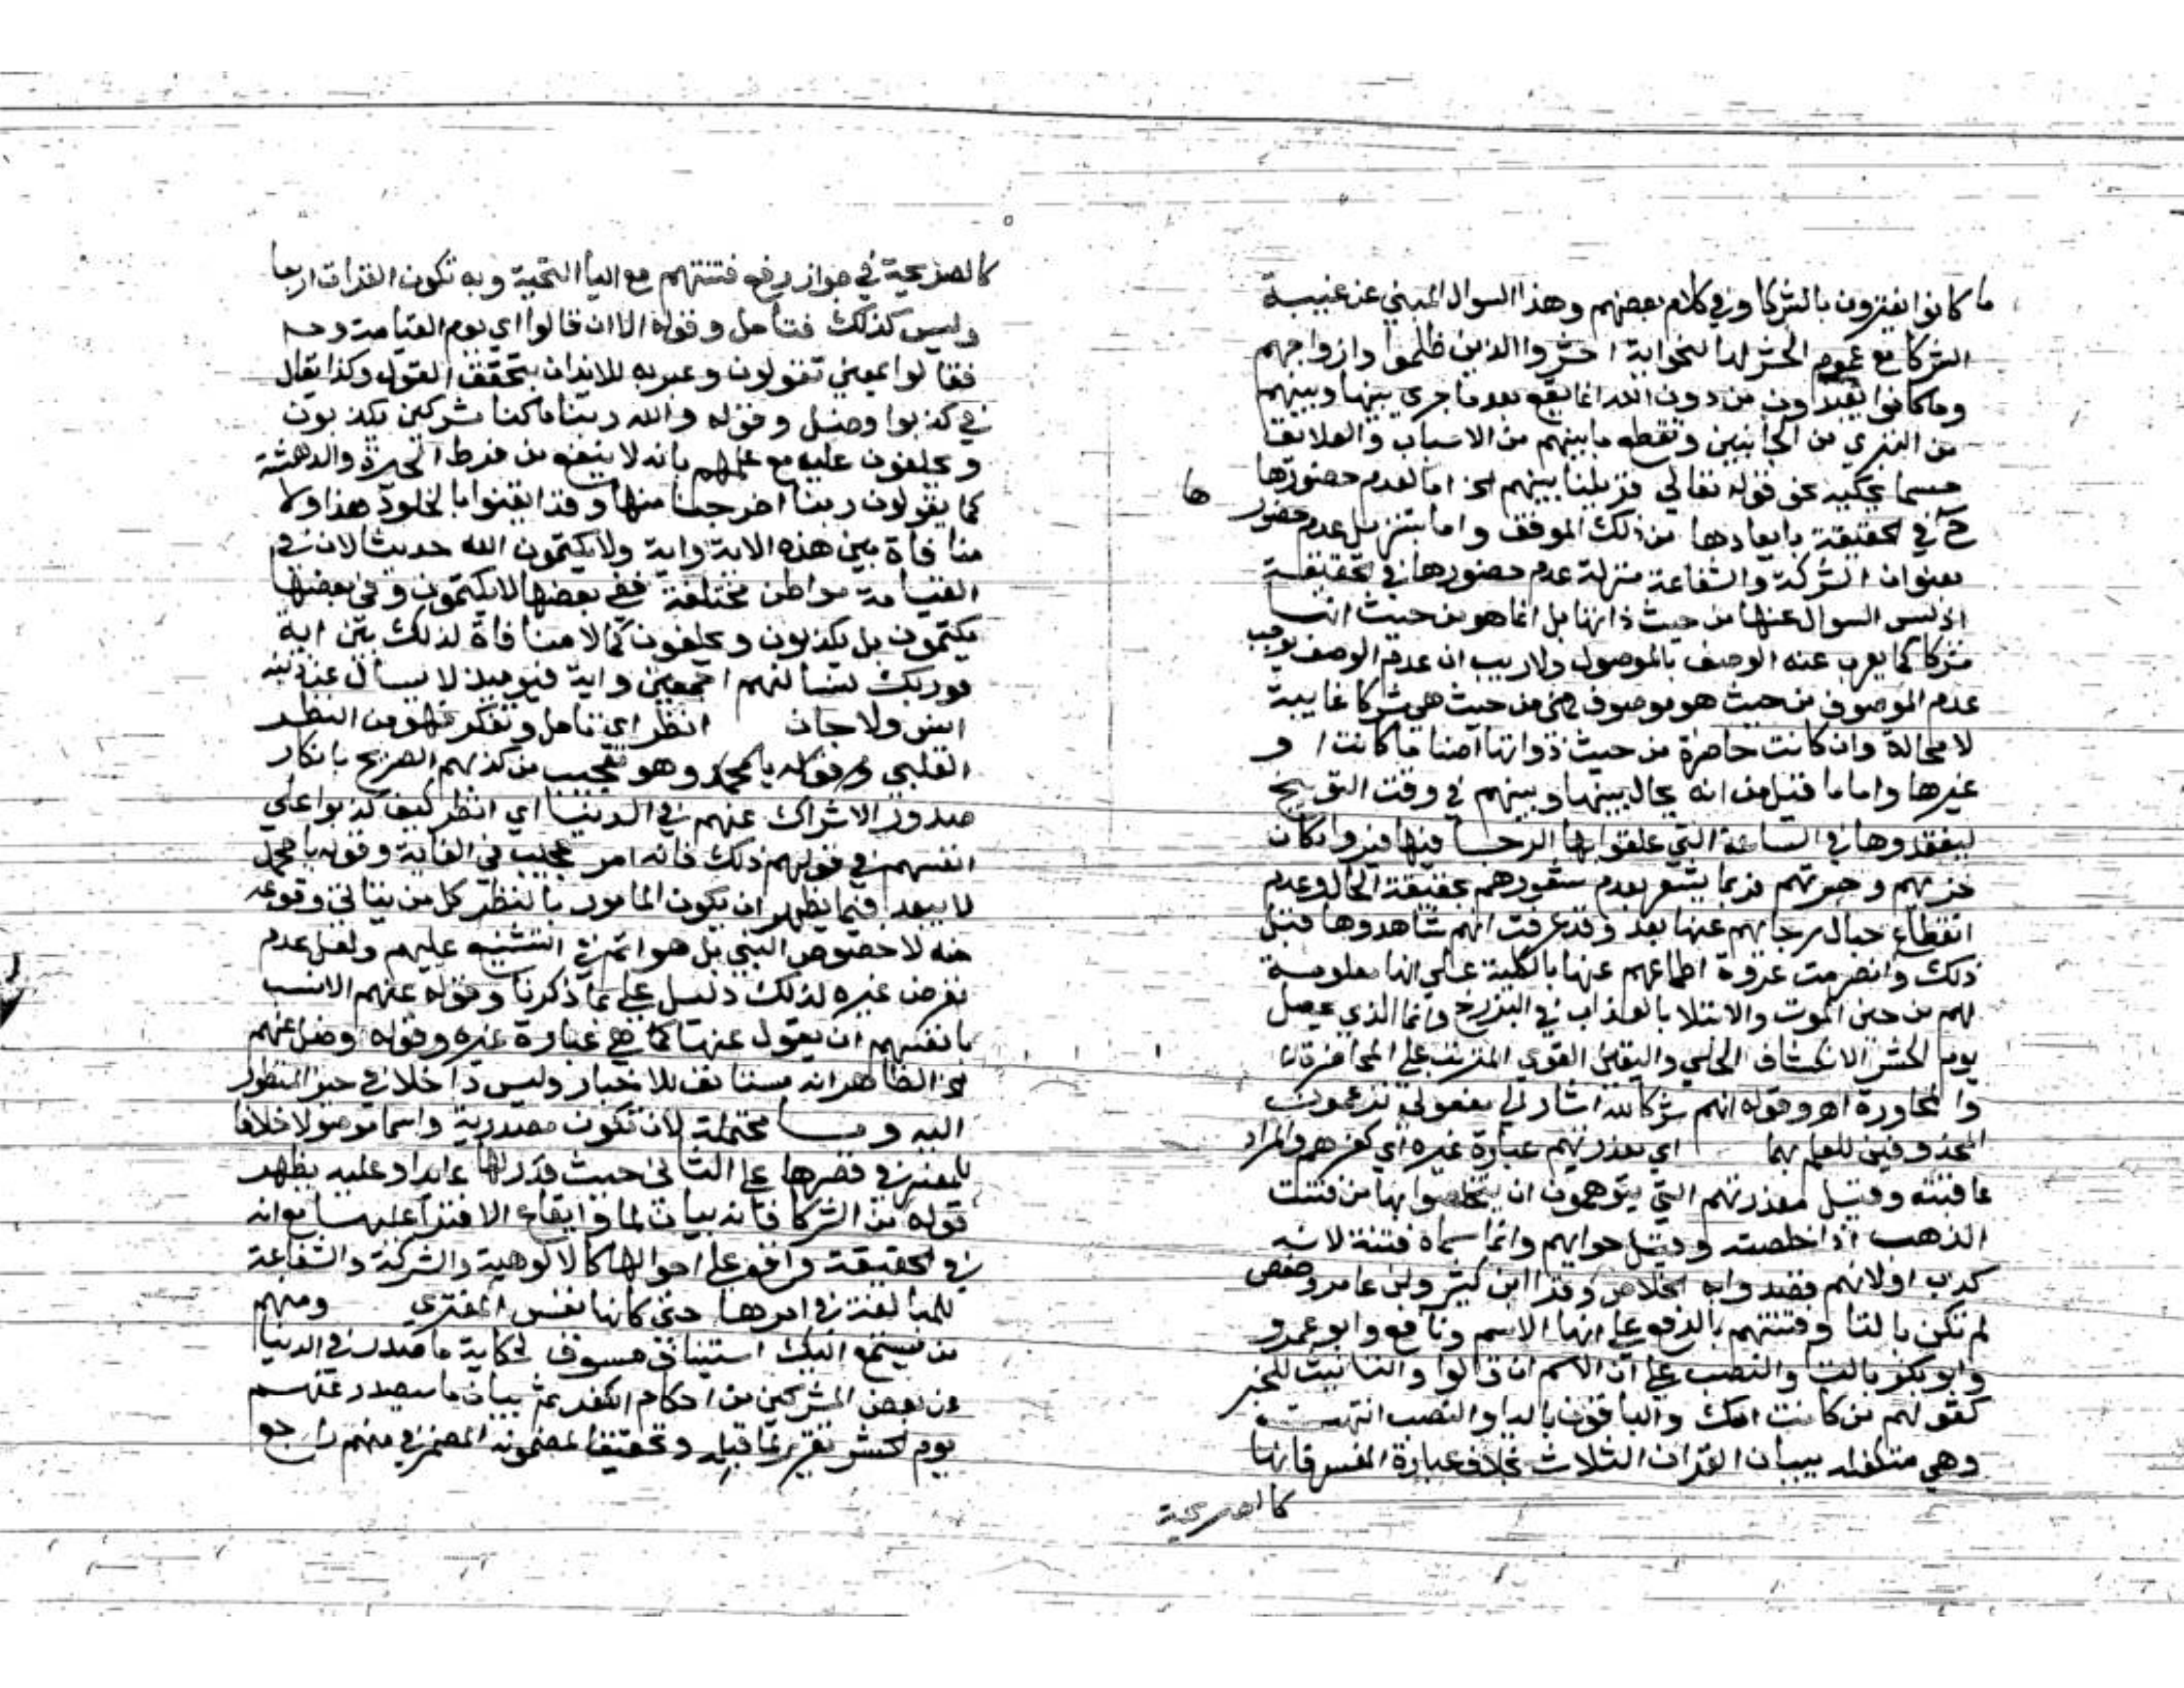 ما كانوا يفترون بالشركا وفي كلام بعضهم وهذا السوال المبني عن غيبة
الشركا مع عموم الحشر لها لنحو اية احشروا الذين ظلموا وازواجهم
وما كانوا يعبدون من دون الله انما يقع بعد ما جرى بينها وبينهم
من التبري من الجانبين وتقطع ما بينهم من الاسباب والعلايق
حسبما يحكيه عن قوله تعالى فزيلنا بينهم الخ اما لعدم حضورها
ها
ح في الحقيقة بابعادها من ذلك الموقف واما بتنزيل عدم حضور
بعنوان الشركة والشفاعة منزلة عدم حضورها في الحقيقة
اذ ليس السوال عنها من حيث ذاتها بل انما هو من حيث انها
شركا كما يعرب عنه الوصف بالموصول ولا ريب ان عدم الوصف يوجب
عدم الموصوف من حيث هو موصوف فهي من حيث هي شركا غايبة
لا محالة وان كانت حاضرة من حيث ذواتها اصناما كانت او
غيرها واما ما قيل من انه يحال بينها وبينهم في وقت التوبيخ
ليفقدوها في الساعة التي علقوا بها الرجا فيها فيروا مكان
خزيهم وحيرتهم فربما يشعر بعدم شعورهم بحقيقة الحال وعدم
انقطاع حبال رجائهم عنها بعد وقد عرفت انهم شاهدوها قبل
ذلك وانصرمت عروة اطماعهم عنها بالكلية على انها معلومة
لهم من حين الموت والابتلا بالعذاب في البرزخ وانما الذي يحصل
يوم الحشر الانكشاف الجلي واليقين القوي المترتب على المحاضرة
والمحاورة اهـ وقوله انهم شركا لله اشار لمفعولي تزعمون
المحذوفين للعلم بهما اي معذرتهم عبارة غيره اي كفرهم والمراد
عاقبته وقيل معذرتهم التي يتوهمون ان يتخلصوا بها من فتنت
الذهب اذا خلصته وقيل جوابهم وانما سماه فتنة لانه
كذب او لانهم قصدوا به الخلاص وقرا ابن كثير وابن عامر وحفص
لم تكن بالتا وفتنتهم بالرفع على انها الاسم ونافع وابو عمرو
وابو بكر بالتا والنصب على ان الاسم ان قالوا والتانيث للخبر
كقولهم من كانت امك والباقون باليا والنصب انتهت
وهي متكفلة ببيان القرات الثلاث بخلاف عبارة المفسر فانها
كالصريحة
كالصريحة في جواز رفع فتنتهم مع اليا التحتية وبه تكون القرات اربعا
وليس كذلك فتامل وقوله الا ان قالوا اي يوم القيامة وحـ
فقالوا بمعنى تقولون وعبر به للايذان بتحقق القول وكذا يقال
في كذبوا وضل وقوله والله ربنا ما كنا مشركين يكذبون
ويحلفون عليه مع علمهم بانه لا ينفع من فرط الحيرة والدهشة
كما يقولون ربنا اخرجنا منها وقد ايقنوا بالخلود هذا ولا
منافاة بين هذه الاية واية ولا يكتمون الله حديثا لان في
القيامة مواطن مختلفة ففي بعضها لا يكتمون وفي بعضها
يكتمون بل يكذبون ويحلفون كما لا منافاة لذلك بين اية
فوربك لنسالنهم اجمعين واية فيوميذ لا يسال عن ذنبه
انس ولا جان انظر اي تامل وتفكر فهو من النظر
القلبي وقوله يا محمد وهو تعجيب من كذبهم الصريح بانكار
صدور الاشراك عنهم في الدنيا اي انظر كيف كذبوا على
انفسهم في قولهم ذلك فانه امر عجيب في الغاية وقوله يا محمد
لا يبعد فيما يظهر ان يكون المامور بالنظر كل من يتاتى وقوعه
منه لا خصوص النبي بل هو اتم في التشنيع عليهم ولعل عدم
تعرض غيره لذلك دليل على ما ذكرنا وقوله عنهم الانسب
بانفسهم ان يقول عنها كما هي عبارة غيره وقوله وضل عنهم
الخ الظاهر انه مستانف للاخبار وليس داخلا في حيز المنظور
اليه وما محتملة لان تكون مصدرية واسما موصولا خلافا
للمفسر في قصرها على الثاني حيث قدر لها عايدا وعليه يظهر
قوله من الشركا فانه بيان لما وايقاع الافترا عليها مع انه
في الحقيقة واقع على احوالها كالالوهية والشركة والشفاعة
للمبالغة في امرها حتى كانها نفس المفتري ومنهم
من يستمع اليك استيناف مسوق لحكاية ما صدر في الدنيا
عن بعض المشركين من احكام الكفر ثم بيان ما سيصدر عنهم
يوم الحشر تقريرا لما قبله وتحقيقا لمضمونه المضمر في منهم راجع